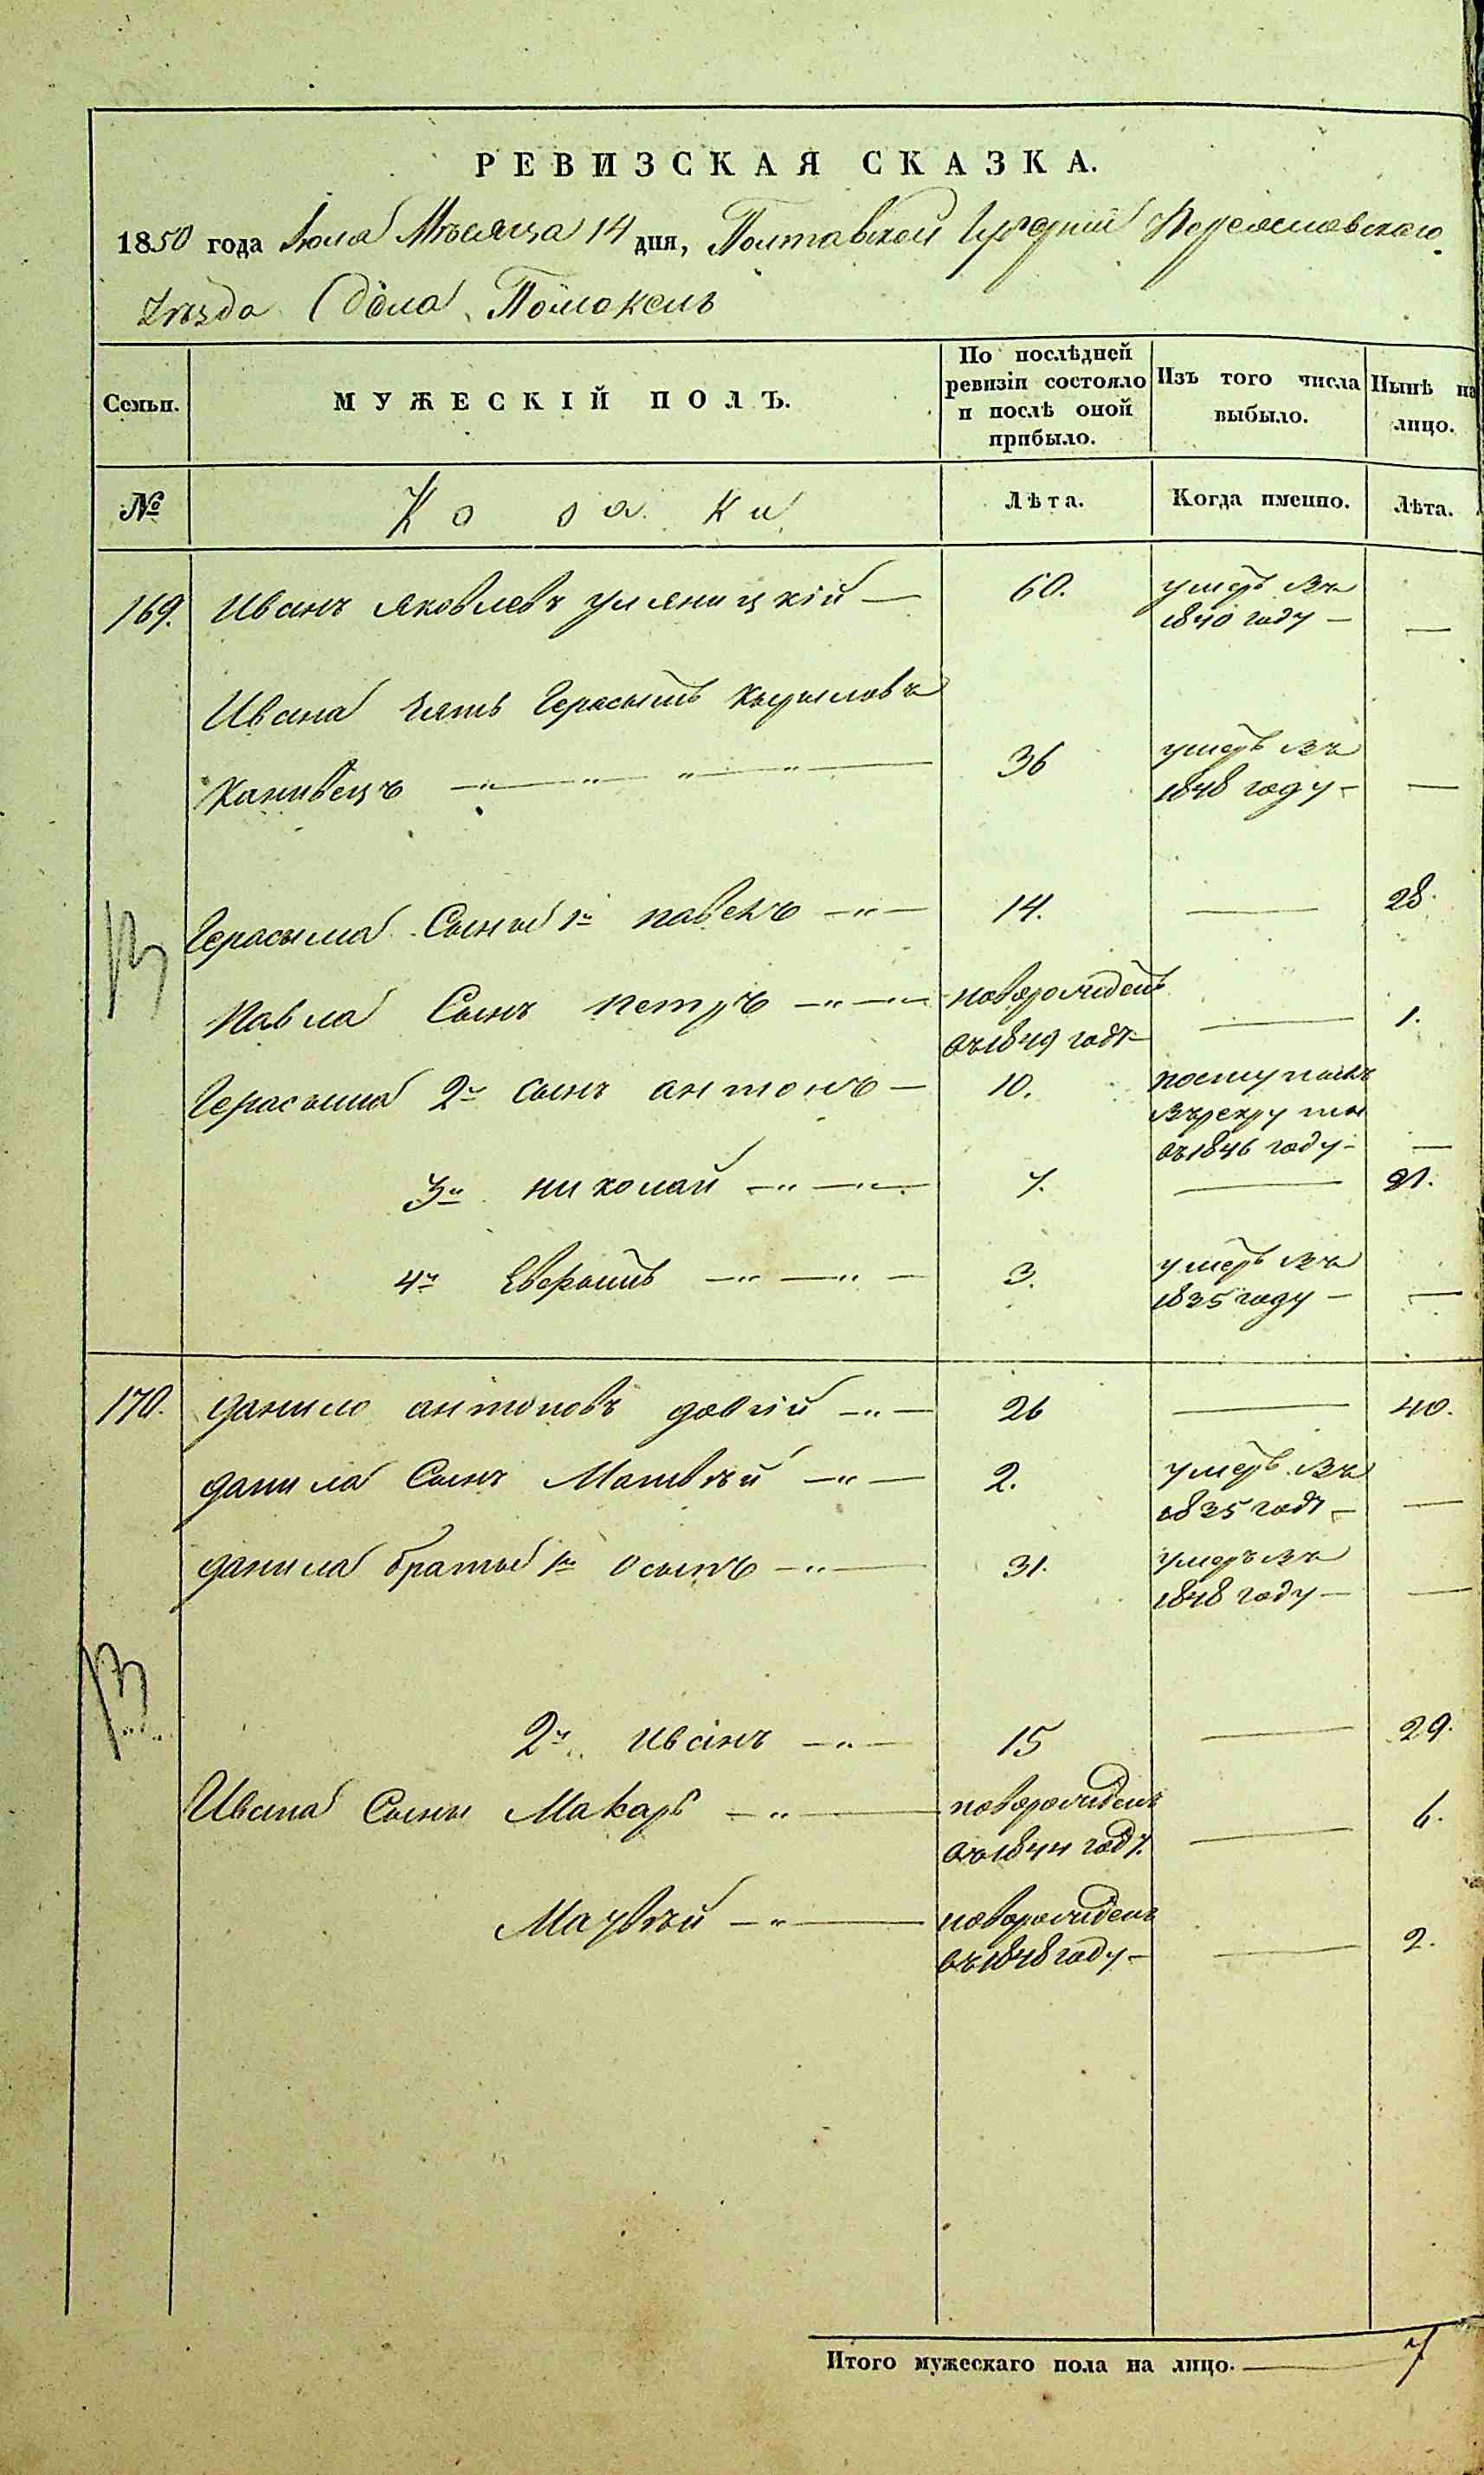 РЕВИЗСКАЯ СКАЗКА.
1850 года Июля Мѣсяца 14 дня, Полтавской Губерніи Переяславскаго
Уѣзда Села Помоклъ
Семьи.
МУЖЕСКІЙ ПОЛЪ.
По послѣдней ревизіи состояло и послѣ оной прибыло.
Изъ того числа выбыло.
Нынѣ на лицо.
№
Козаки
Лѣта.
Когда именно.
Лѣта.
169. Иванъ Яковлевъ Уляницкій — 60. умеръ въ
1840 году — —
Ивана зять Герасымъ Кырыловъ
Каnивецъ 36 умеръ въ
1848 году — —
Герасыма Сыны 1й павелъ 14. — 28.
Павла Сынъ петръ новорожденъ
въ 1849 году — — 1.
Герасыма 2й сынъ антонъ — 10. поступилъ
въ рекруты
въ 1846 году — —
3й николай 7. — 21.
4й Евфымъ 3. умеръ въ
1835 году — —
170. данило антоновъ довгій 26 — 40.
данила Сынъ Матвѣй 2. умеръ въ
1835 году — —
данила братья 1й осыпъ 31. умеръ въ
1848 году — —
2й иванъ 15 — 29.
Ивана Сыны Макаръ новорожденъ
въ 1844 году — 6.
Матвѣй новорожденъ
въ 1848 году — — 2.
Итого мужескаго пола на лицо. — 7